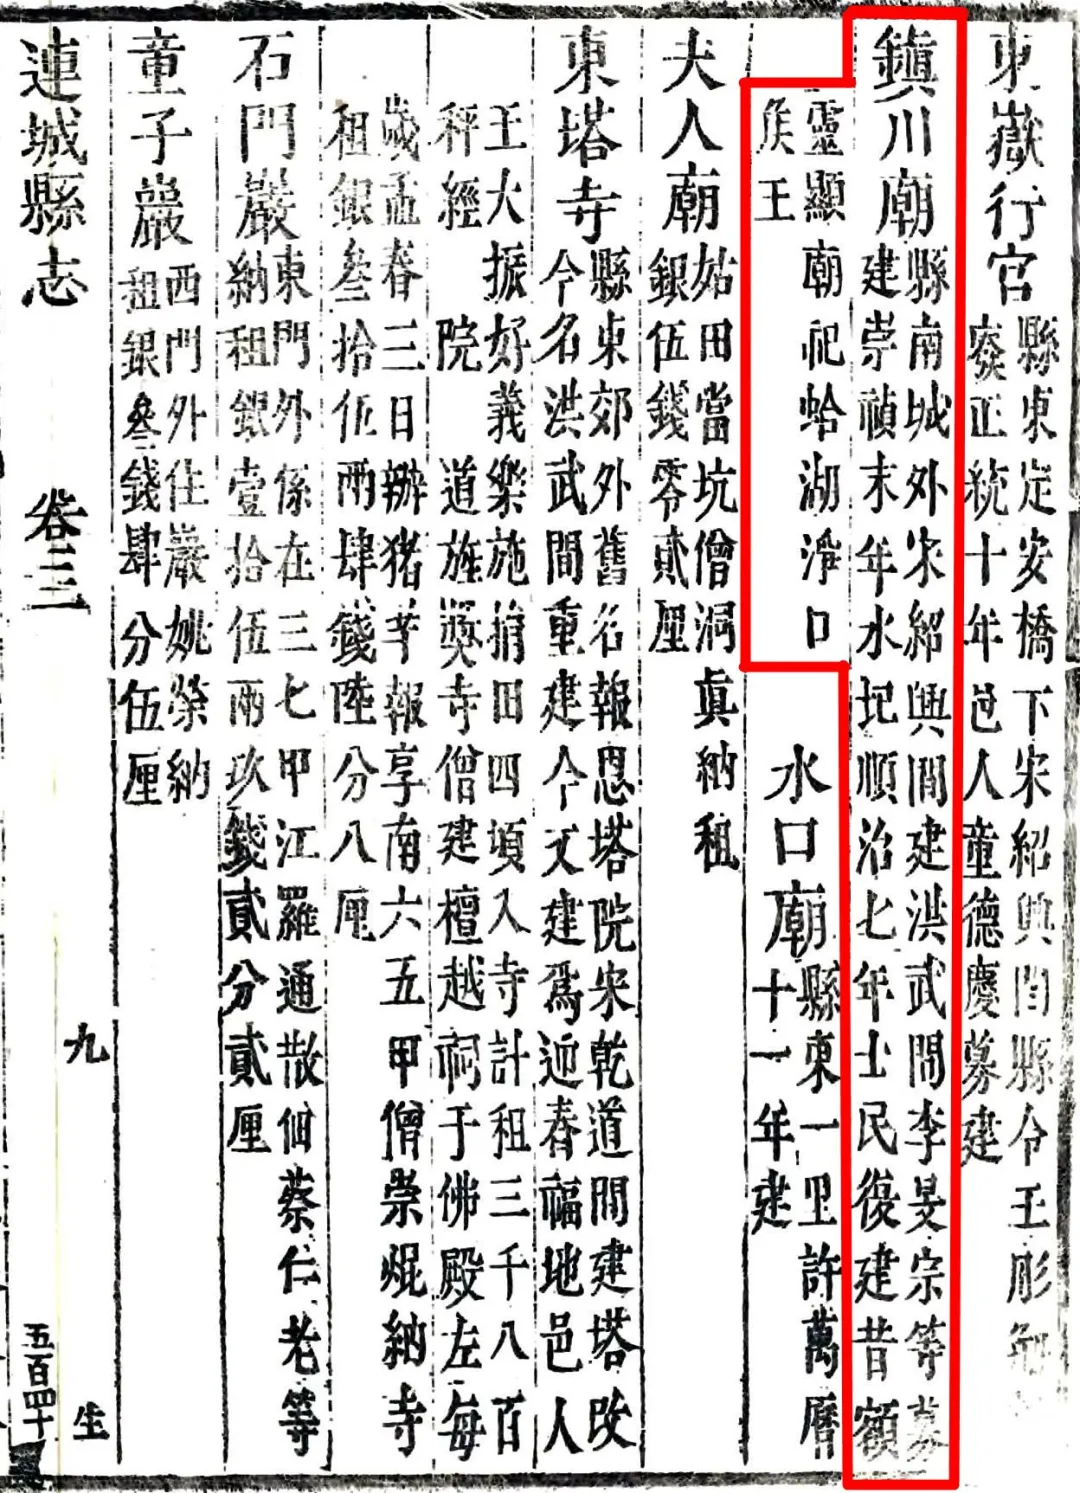 東嶽行宮
縣東定安橋下宋紹興間縣令王彤
癈正統十年邑人童德慶募建
鎮川廟
縣南城外宋紹興間建洪武間李旻宗等募
建崇禎末年水圮順治七年士民復建昔額
靈顯廟祀蛤湖淨口
侯王
水口廟
縣東一里許萬曆
十一年建
夫人廟
姑田當坑僧洞真納租
銀伍錢零貳厘
東塔寺
縣東郊外舊名報恩塔院宋乾道間建塔改
今名洪武間重建今又建為迎春福地邑人
王大振好義樂施捐田四頃入寺計租三千八百
秤經院道旌奬寺僧建檀越祠于佛殿左每
歲孟春三日辦猪羊報享南六五甲僧崇焜納寺
租銀叁拾伍兩肆錢陸分八厘
石門巖
東門外係在三七甲江羅通散佃蔡仁老等
納租銀壹拾伍兩玖錢貳分貳厘
童子巖
西門外住巖姚榮納
租銀叁錢肆分伍厘
連城縣志
卷三
九
五百四十
生